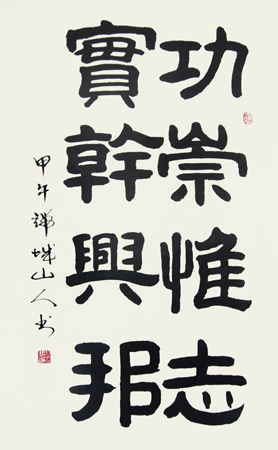 功崇惟志
實幹興邦
甲午錦城山人书